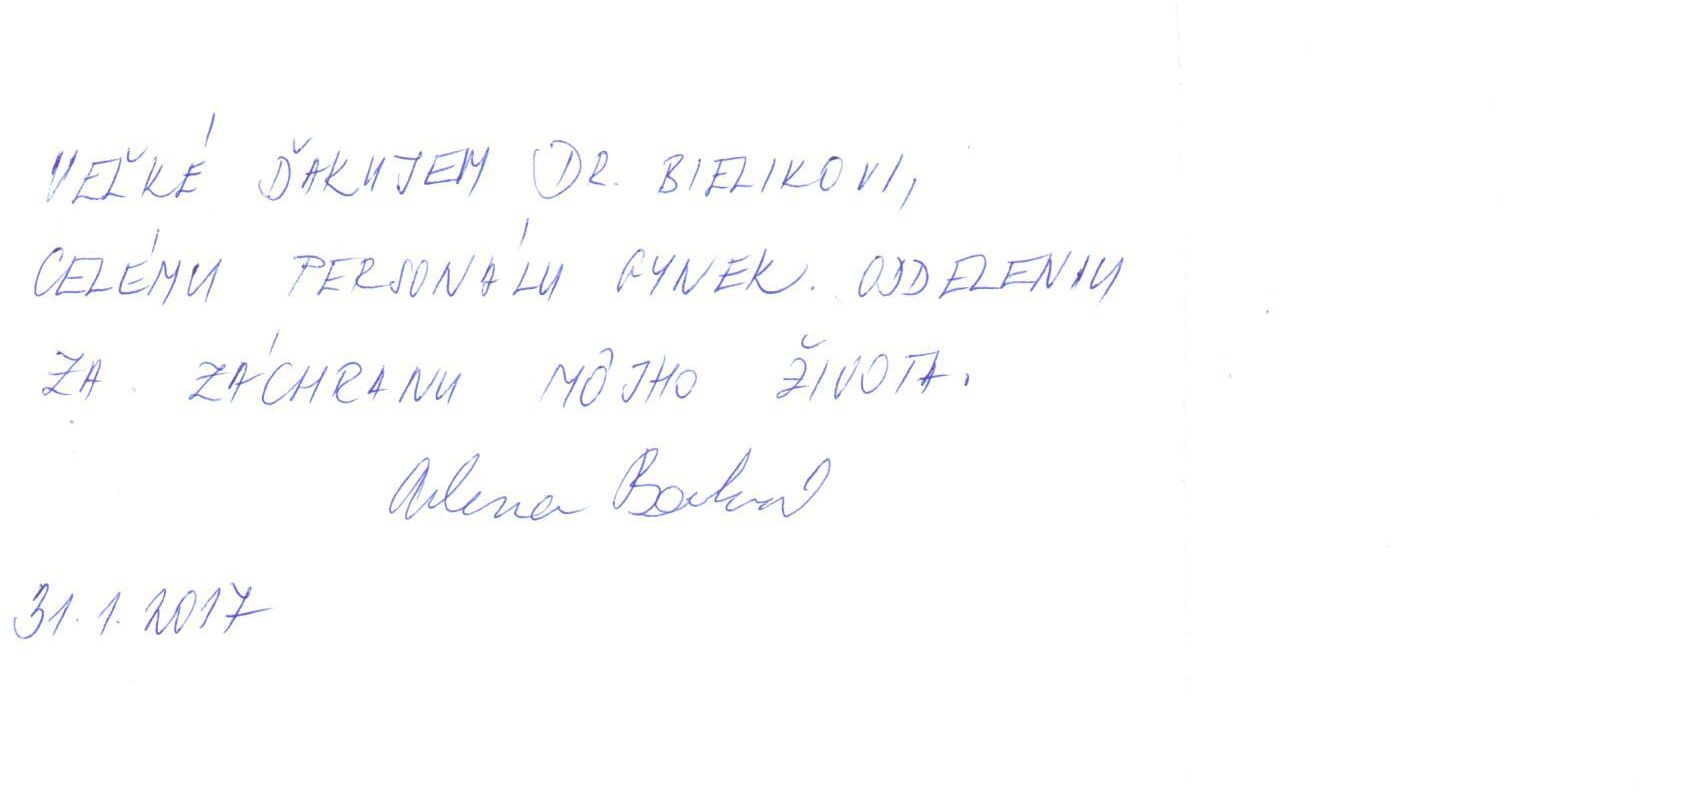 VEĽKÉ ĎAKUJEM DR. BIELIKOVI,
CELÉMU PERSONÁLU GYNEK. ODDELENIU
ZA ZÁCHRANU MÔJHO ŽIVOTA.
Alena
31.1.2017